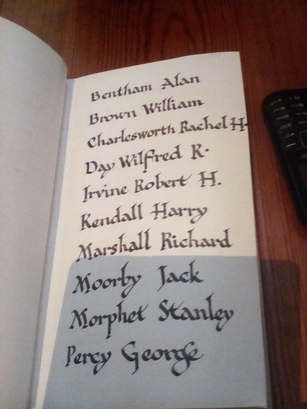 Bentham Alan
Brown William
Charlesworth Rachel H.
Day Wilfred R.
Irvine Robert H.
Kendall Harry
Marshall Richard
Moorby Jack
Morphet Stanley
Percy George